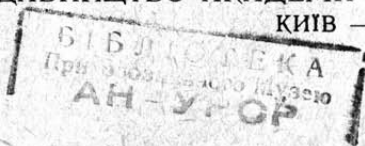 КИЇВ —
БІБЛІОТЕКА
Природознавчого Музею
АН - УРСР